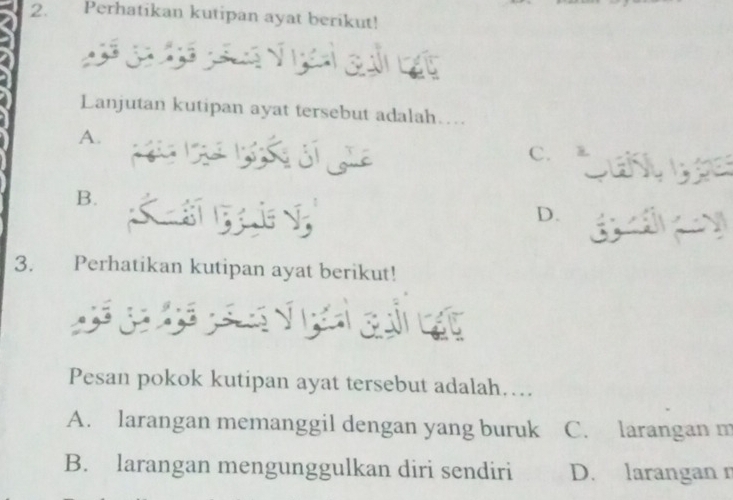 2. Perhatikan kutipan ayat berikut!
يٰٓاَيُّهَا الَّذِيْنَ اٰمَنُوْا لَا يَسْخَرْ قَوْمٌ مِّنْ قَوْمٍ
Lanjutan kutipan ayat tersebut adalah....
A. عَسٰٓى اَنْ يَّكُوْنُوْا خَيْرًا مِّنْهُمْ
C. بِالْاَلْقَابِ
B. وَلَا تَلْمِزُوْٓا اَنْفُسَكُمْ
D. الِاسْمُ الْفُسُوْقُ
3. Perhatikan kutipan ayat berikut!
يٰٓاَيُّهَا الَّذِيْنَ اٰمَنُوْا لَا يَسْخَرْ قَوْمٌ مِّنْ قَوْمٍ
Pesan pokok kutipan ayat tersebut adalah....
A. larangan memanggil dengan yang buruk C. larangan
B. larangan mengunggulkan diri sendiri D. larangan